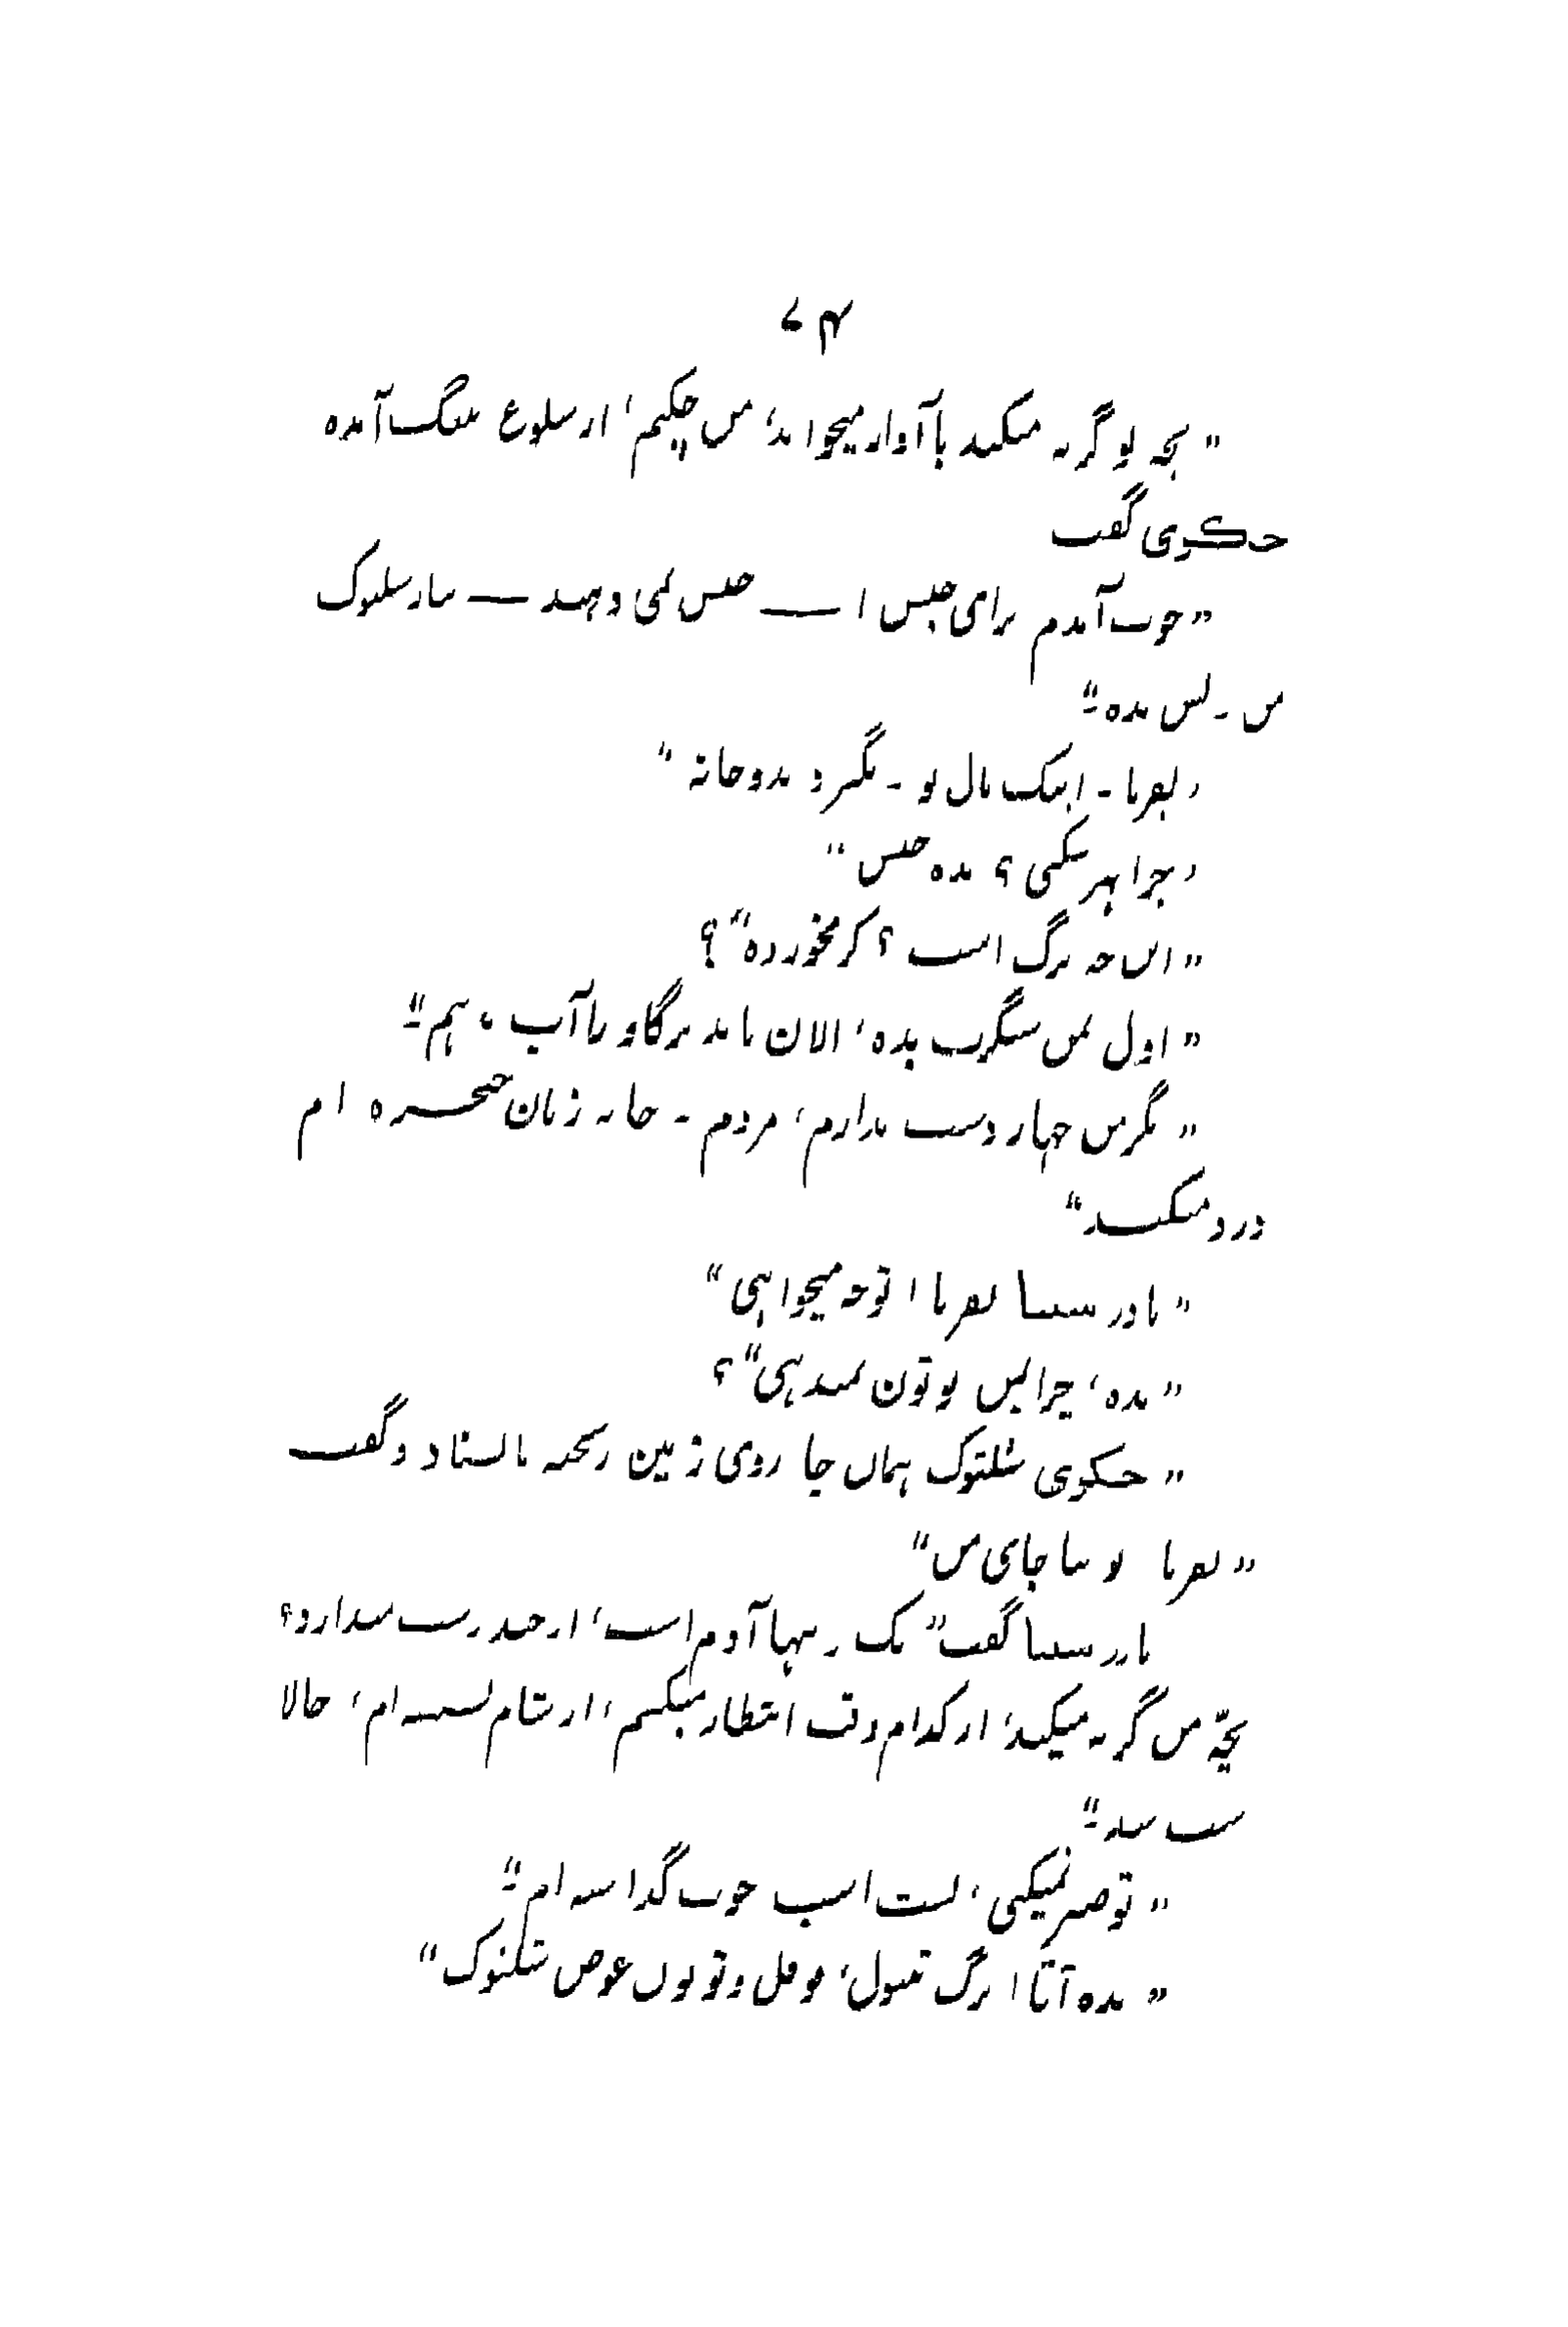 ۷۴
" بچه تو گریه میکند یا آواز میخواند، من چکنم، از شلوغ بتنگ آمده
جنکوی گفت
" خوب آمدم برای جنس ا — جنس نمی دهید — بیار شلتوک
من ۔ پس بده ۔"
، بفرما ۔ اینک مال تو ۔ بگیر و بدو خانه "
، چرا پر میکنی ؟ بده جنس "
" این چه برگ است ؟ کرمخورده " ؟
" اول بمن سیگرت بده، الان باید بر گاو را آب بدهم ۔"
" مگر من چهار دست ندارم، مردم ۔ خانه زنان حنجره ام
درد میکند "
" مادر سیتا بفرما ا تو چه میخواهی "
" بده، چرا پس پوتون نمیدهی " ؟
" جنکوی شلتوک همان جا روی زمین ریخته بایستاد و گفت
" بفرما تو بیا جای من "
مادر سیتا گفت " مگر تنها آدم است، از چند رست میدارد ؟
بچّه من گریه میکند، از کدام وقت انتظار میکنم، از شام نشسته ام، حالا
شب شد ۔"
" تو صبر نمیکنی، پشت اسب خوب گذاشته ام ۔"
" بده آقا ا برگ تنبول، فوفل و توتون عوض شلتوک "